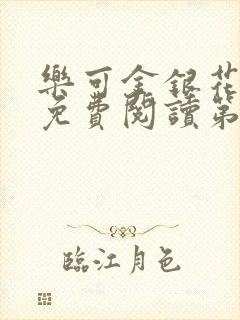 樂可金銀花
免費閱讀第
臨江月色